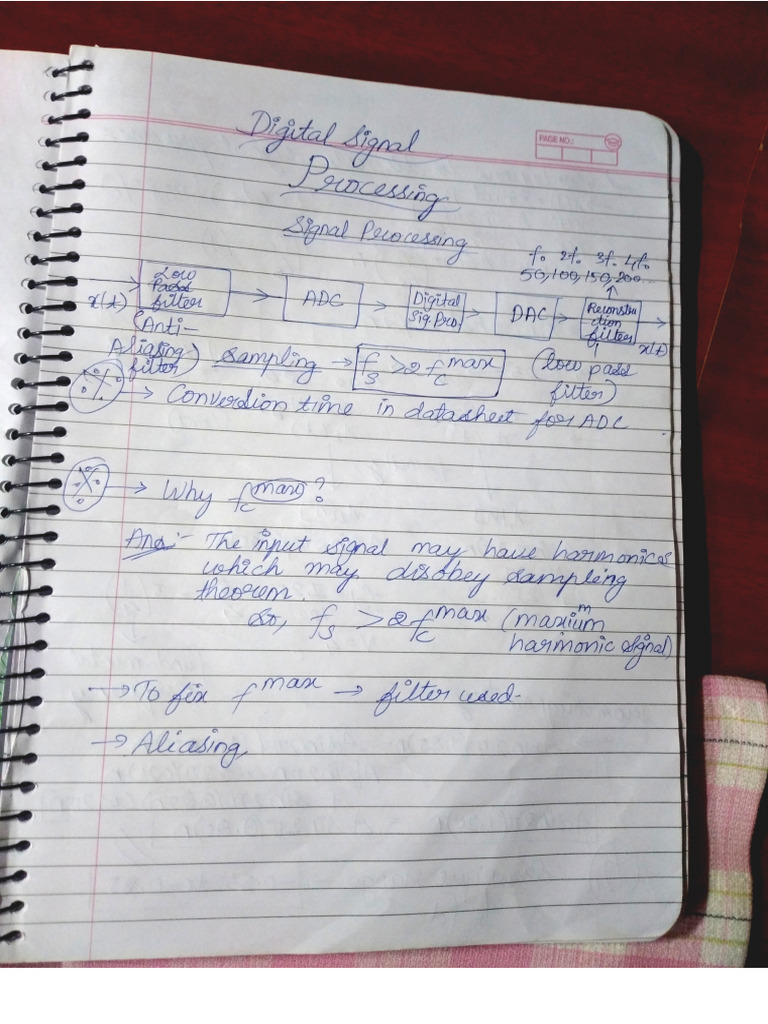 PAGE NO.:
Digital Signal
Processing
Signal Processing
f₀ 2f₀ 3f₀ 4f₀
50,100,150,200...
x(t) Low Pass filter ADC Digital Sig. Pro. DAC Reconstruction filter x(t)
(Anti-Aliasing filter) Sampling → fs > 2 fc^max (low pass filter)
→ Conversion time in datasheet for ADC.
→ Why fc^max?
Ans:- The input signal may have harmonics
which may disobey sampling
theorem.
So, fs > 2fc^max (maximum
harmonic signal)
→ To fix f^max → filter used.
→ Aliasing